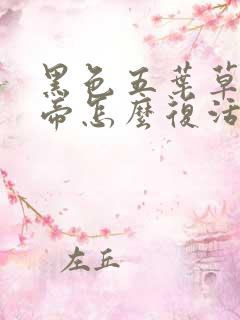 黑色五葉草
帝怎麼復活
左丘